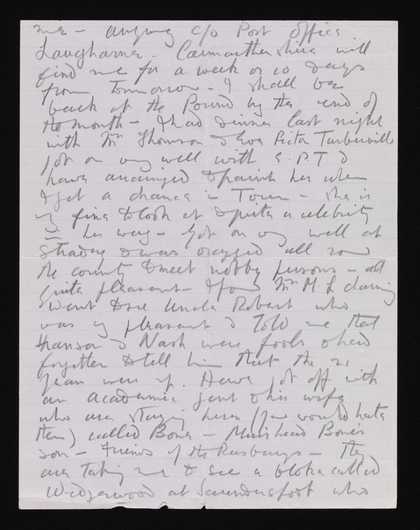 me – anyway c/o Post Office
Laugharne. Carmarthenshire will
find me for a week or 10 days
from tomorrow – I shall be
back at the Pound by the end of
the month – I had dinner last night
with Mrs Thomson & Eva Picton Turbervill
got on very well with E.P.T &
have arranged to paint her when
I get a chance in Town – she is
v. fine to look at & quite a celebrity
in her way – Got on v. well at
Stradey & was dragged all round
the county to meet nobby persons – all
quite pleasant – Mrs M L
went to see Uncle Robert who
was v. pleasant & told me that
& Nash were fools & he'd
forgotten to tell him that the 21
years were up. Have got off with
an academic gent & his wife
who are staying here (you would hate
them) called Bone – Muirhead Bone's
son – friends of the – They
are taking me to see a bloke called
Wedgwood at Saundersfoot who